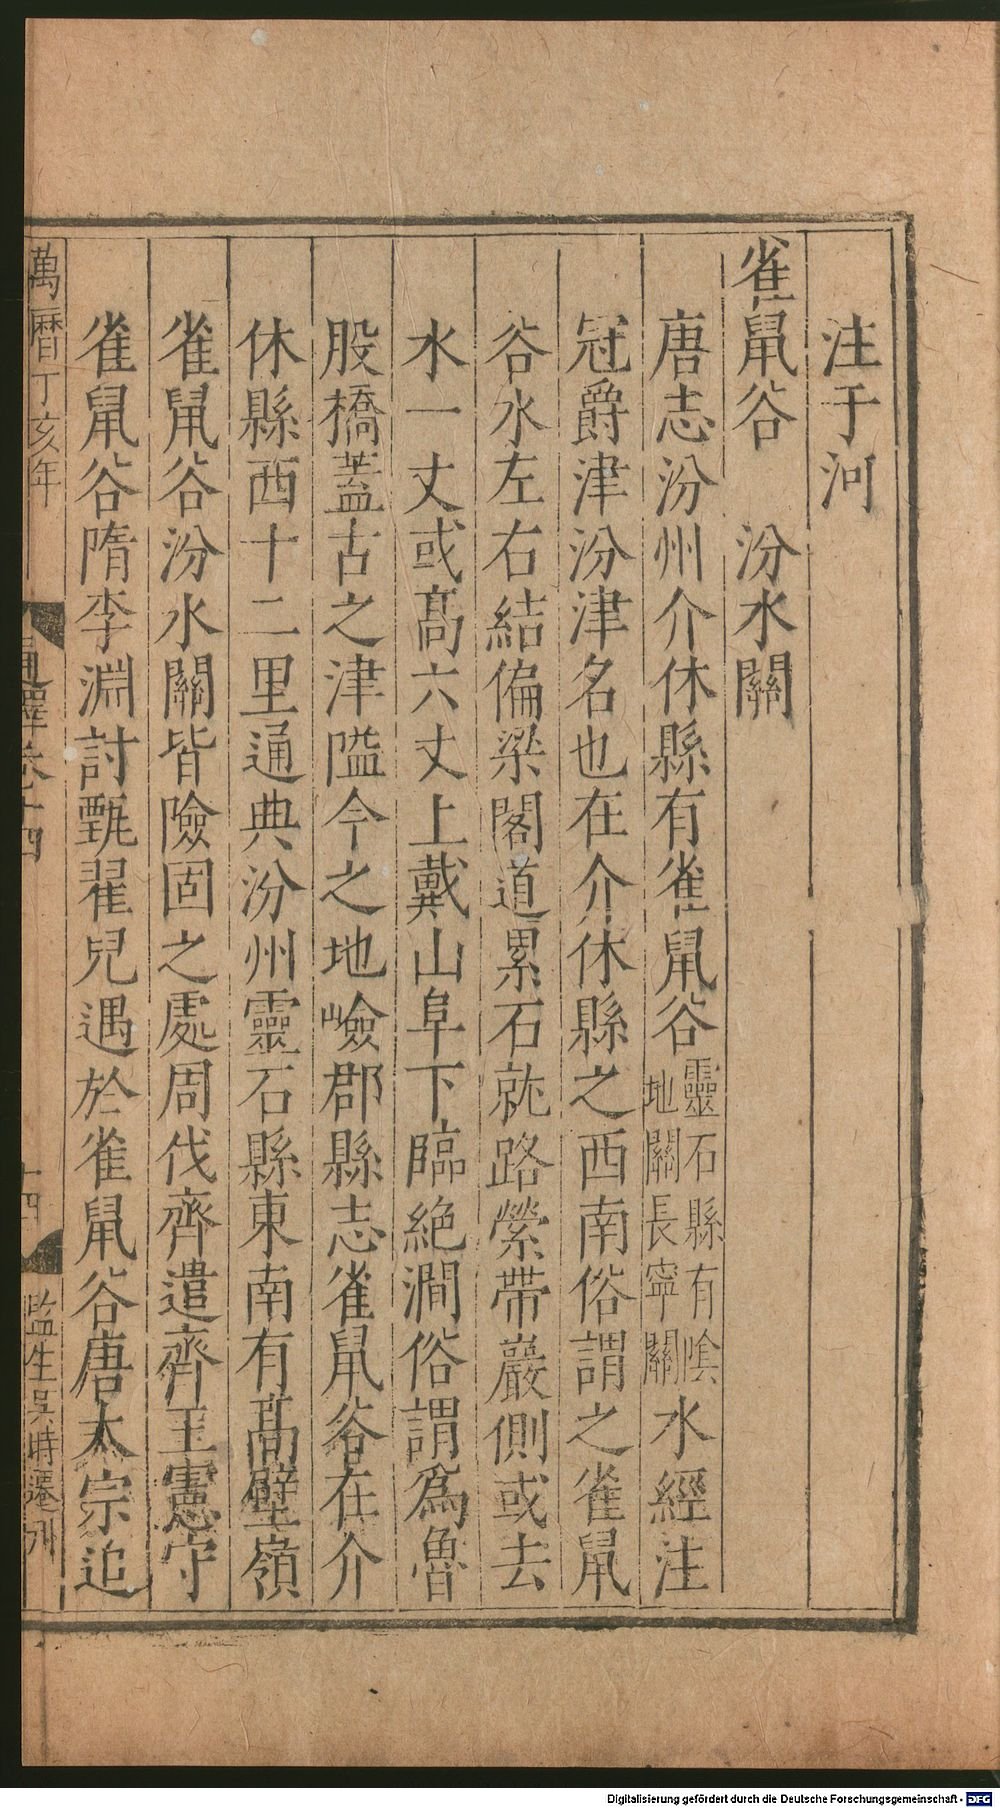 注于河
雀䑕谷　汾水關
唐志汾州介休縣有雀䑕谷靈石縣有隂地關長寧關水經注
冠爵津汾津名也在介休縣之西南俗謂之雀䑕
谷水左右結偏梁閣道累石就路縈帶巖側或去
水一丈或髙六丈上戴山阜下臨絶澗俗謂爲魯
股橋蓋古之津隘今之地嶮郡縣志雀䑕谷在介
休縣西十二里通典汾州靈石縣東南有髙壁嶺
雀䑕谷汾水關皆險固之處周伐齊遣齊王憲守
雀䑕谷隋李淵討甄翟兒遇於雀䑕谷唐太宗追
萬曆丁亥年
通釋卷十四
十四
監生吳時遷刊
Digitalisierung gefördert durch die Deutsche Forschungsgemeinschaft - DFG